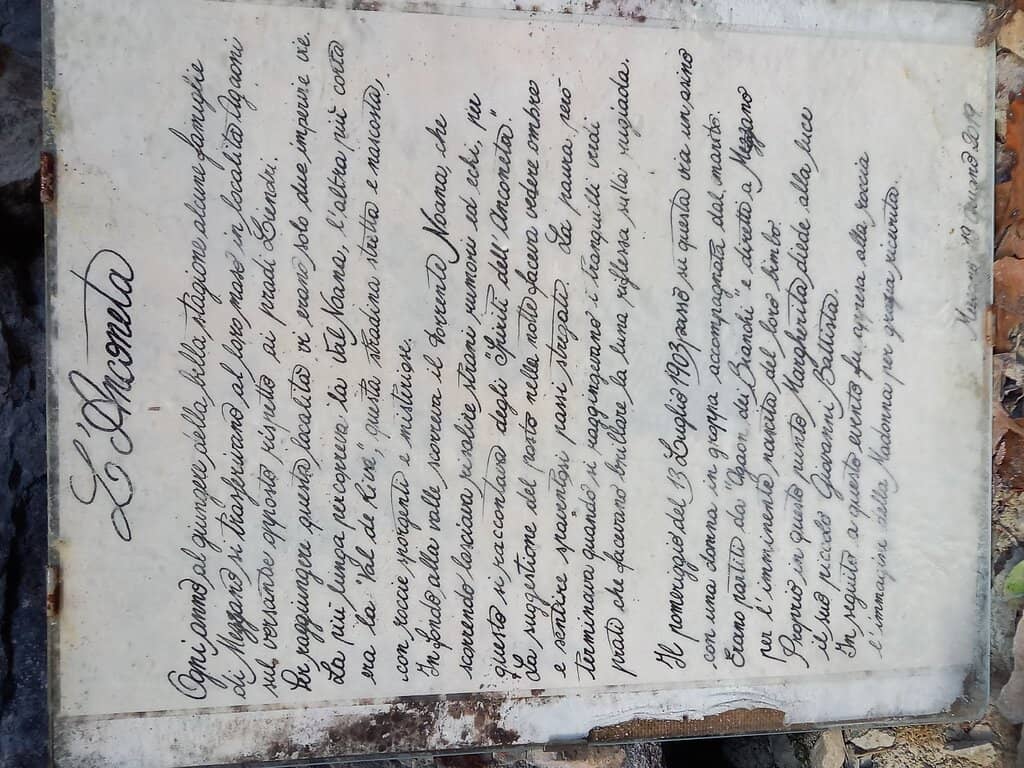 L'Anconeta
Ogni anno al giungere della bella stagione alcune famiglie
di Mezzano si trasferivano al loro maso in località Agaoni
sul versande opposto rispetto ai pradi Liendri.
Per raggiungere questa località vi erano solo due impervie vie.
La più lunga percorreva la Val Noana, l'altra più corta
era la "Val de Rive", questa stradina stretta e nascosta,
con roccie sporgenti e misteriose.
In fondo alla valle scorreva il torrente Noana, che
scorrendo lasciava risalire strani rumori ed echi, per
questo si raccontava degli "Spiriti dell'Anconeta".
La suggestione del posto nella notte faceva vedere ombre
e sentire spaventosi passi stregati. La paura però
terminava quando si raggiungevano i tranquilli verdi
prati che facevano brillare la luna riflessa sulla rugiada.
Il pomeriggio del 13 Luglio 1903 passò su questa via un asino
con una donna in groppa accompagnata dal marito.
Erano partiti da "Agaon dei Bianchi" e diretti a Mezzano
per l'imminente nascita del loro bimbo.
Proprio in questo punto Margherita diede alla luce
il suo piccolo Giovanni Battista.
In seguito a questo evento fu appesa alla roccia
l'immagine della Madonna per grazia ricevuta.
2019